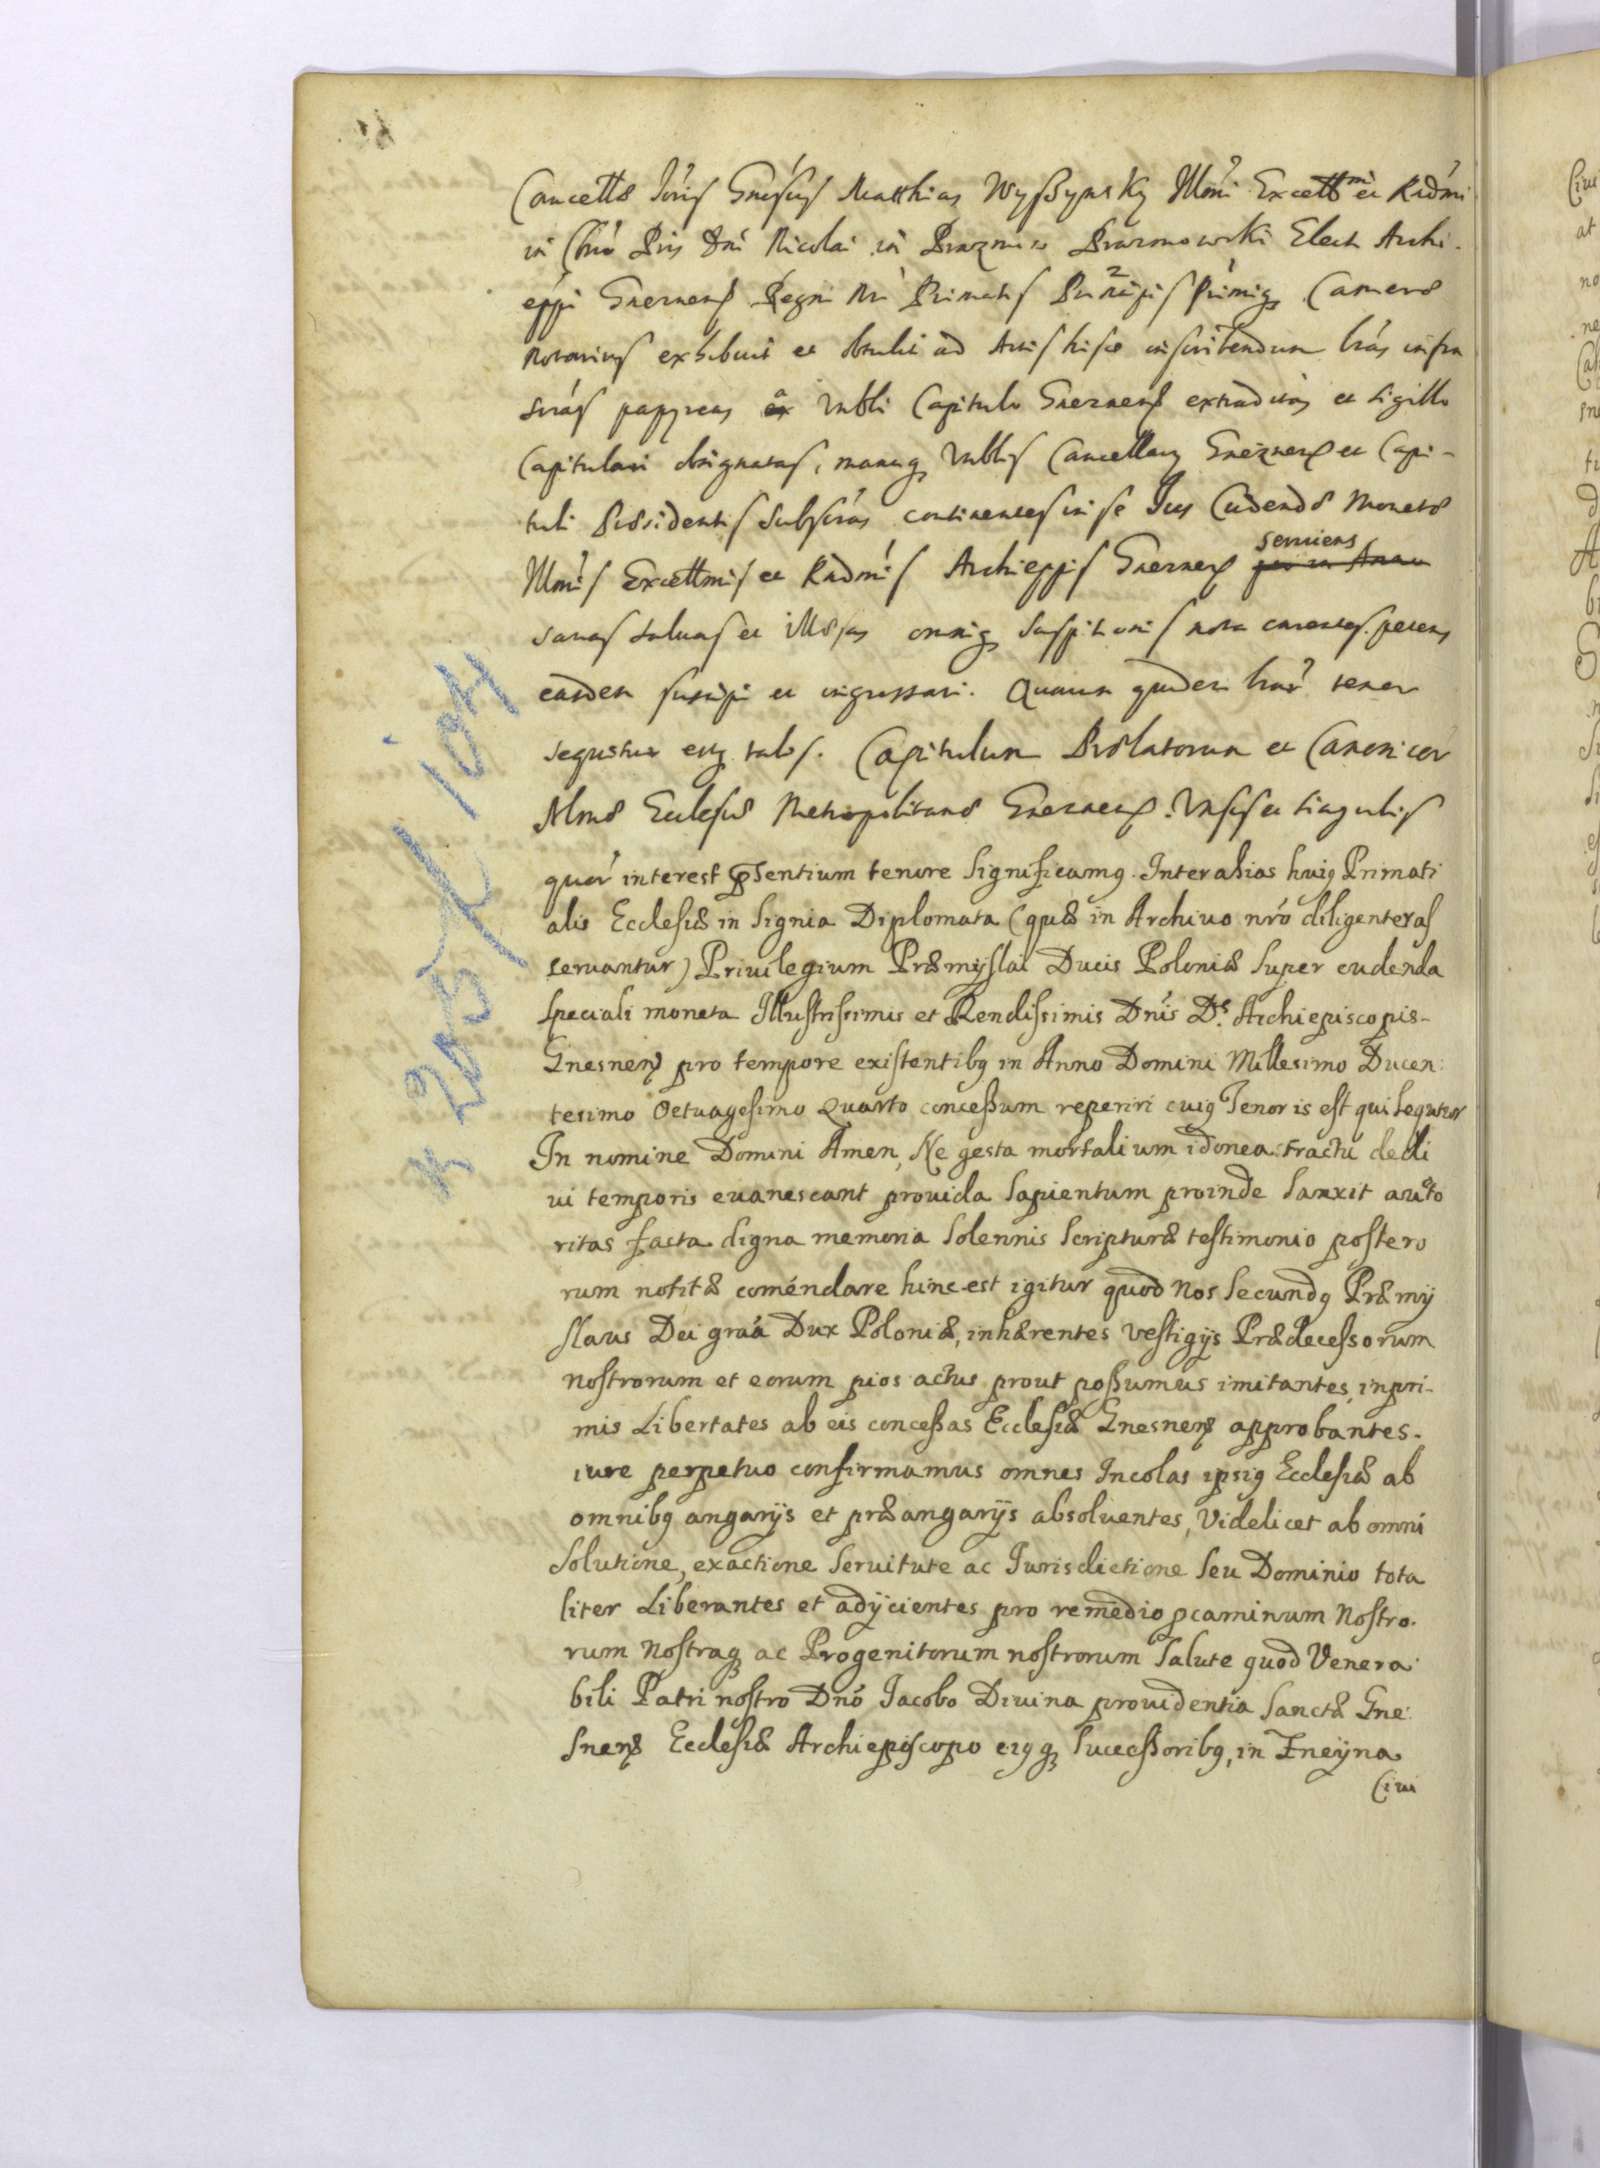 Cancellæ Matthias Wyssynsky Illm̃i Excell mi et Rndmi
in Chrō Pris Dni Nicolai in Prazmow Prazmowski Elect Archi-
eppi Gneznens Regni Primatis Primiq Cameræ
Notarius exhibuit et obtulit ad Actis hisce inscribendum lras infra
scras papyreas a Vnbli Capitulo Gneznens extraditas et Sigillo
Capitulari obsignatas, manuq Vnblis Cancellarij Gneznens et Capi-
tuli Præsidentis Subscras continentes in se Ius Cudendæ Monetæ
Illm̃is Excellmis et Rndmis Archieppis Gneznens seruiens
sanas saluas et illæsas omniq suspitionis nota carentes petens
easdem suscipi et ingrossari. Quarum quidem lrar tenor
sequitur estq talis. Capitulum Prælatorum et Canonicor
Almæ Ecclesiæ Metropolitanæ Gneznens. Vnisis et singulis
quor interest pñsentium tenore Significamq. Inter alias huiq Primati
alis Ecclesiæ in Signia Diplomata (quæ in Archiuo nrō diligenter as
seruantur) Priuilegium Præmÿslai Ducis Poloniæ Super cudenda
Speciali moneta Illustrissimis et Rendissimis Dnis Ds. Archiepiscopis-
Gnesnens pro tempore existentibq in Anno Domini Millesimo Ducen:
tesimo Octuagesimo Quarto concessum reperiri cuiq Tenor is est qui Sequitur
In nomine Domini Amen, Ne gesta mortalium idonea tractu decli
ui temporis euanescant prouida Sapientum proinde Sanxit aucto
ritas facta digna memoria Solennis Scripturæ testimonio postero
rum notitæ comēndare hinc est igitur quod Nos Secundq Præmÿ
slaus Dei graā Dux Poloniæ, inhærentes Vestigÿs Prædecessorum
Nostrorum et eorum pios actus prout possumus imitantes, inpri-
mis Libertates ab eis concessas Ecclesiæ Gnesnens approbantes.
iure perpetuo confirmamus omnes Incolas ipsiq Ecclesiæ ab
omnibq angarÿs et præangarÿs absoluentes, Videlicet ab omni
Solutione, exactione Seruitute ac Iurisdictione Seu Dominio tota
liter Liberantes et adÿcientes pro remedio pcaminum Nostro.
rum Nostraq ac Progenitorum nostrorum Salute quod Venera
bili Patri nostro Dnō Iacobo Diuina prouidentia Sanctæ Gne
Snens Ecclesiæ Archiepiscopo eiqq Successoribq, in Zneÿna
Ciui